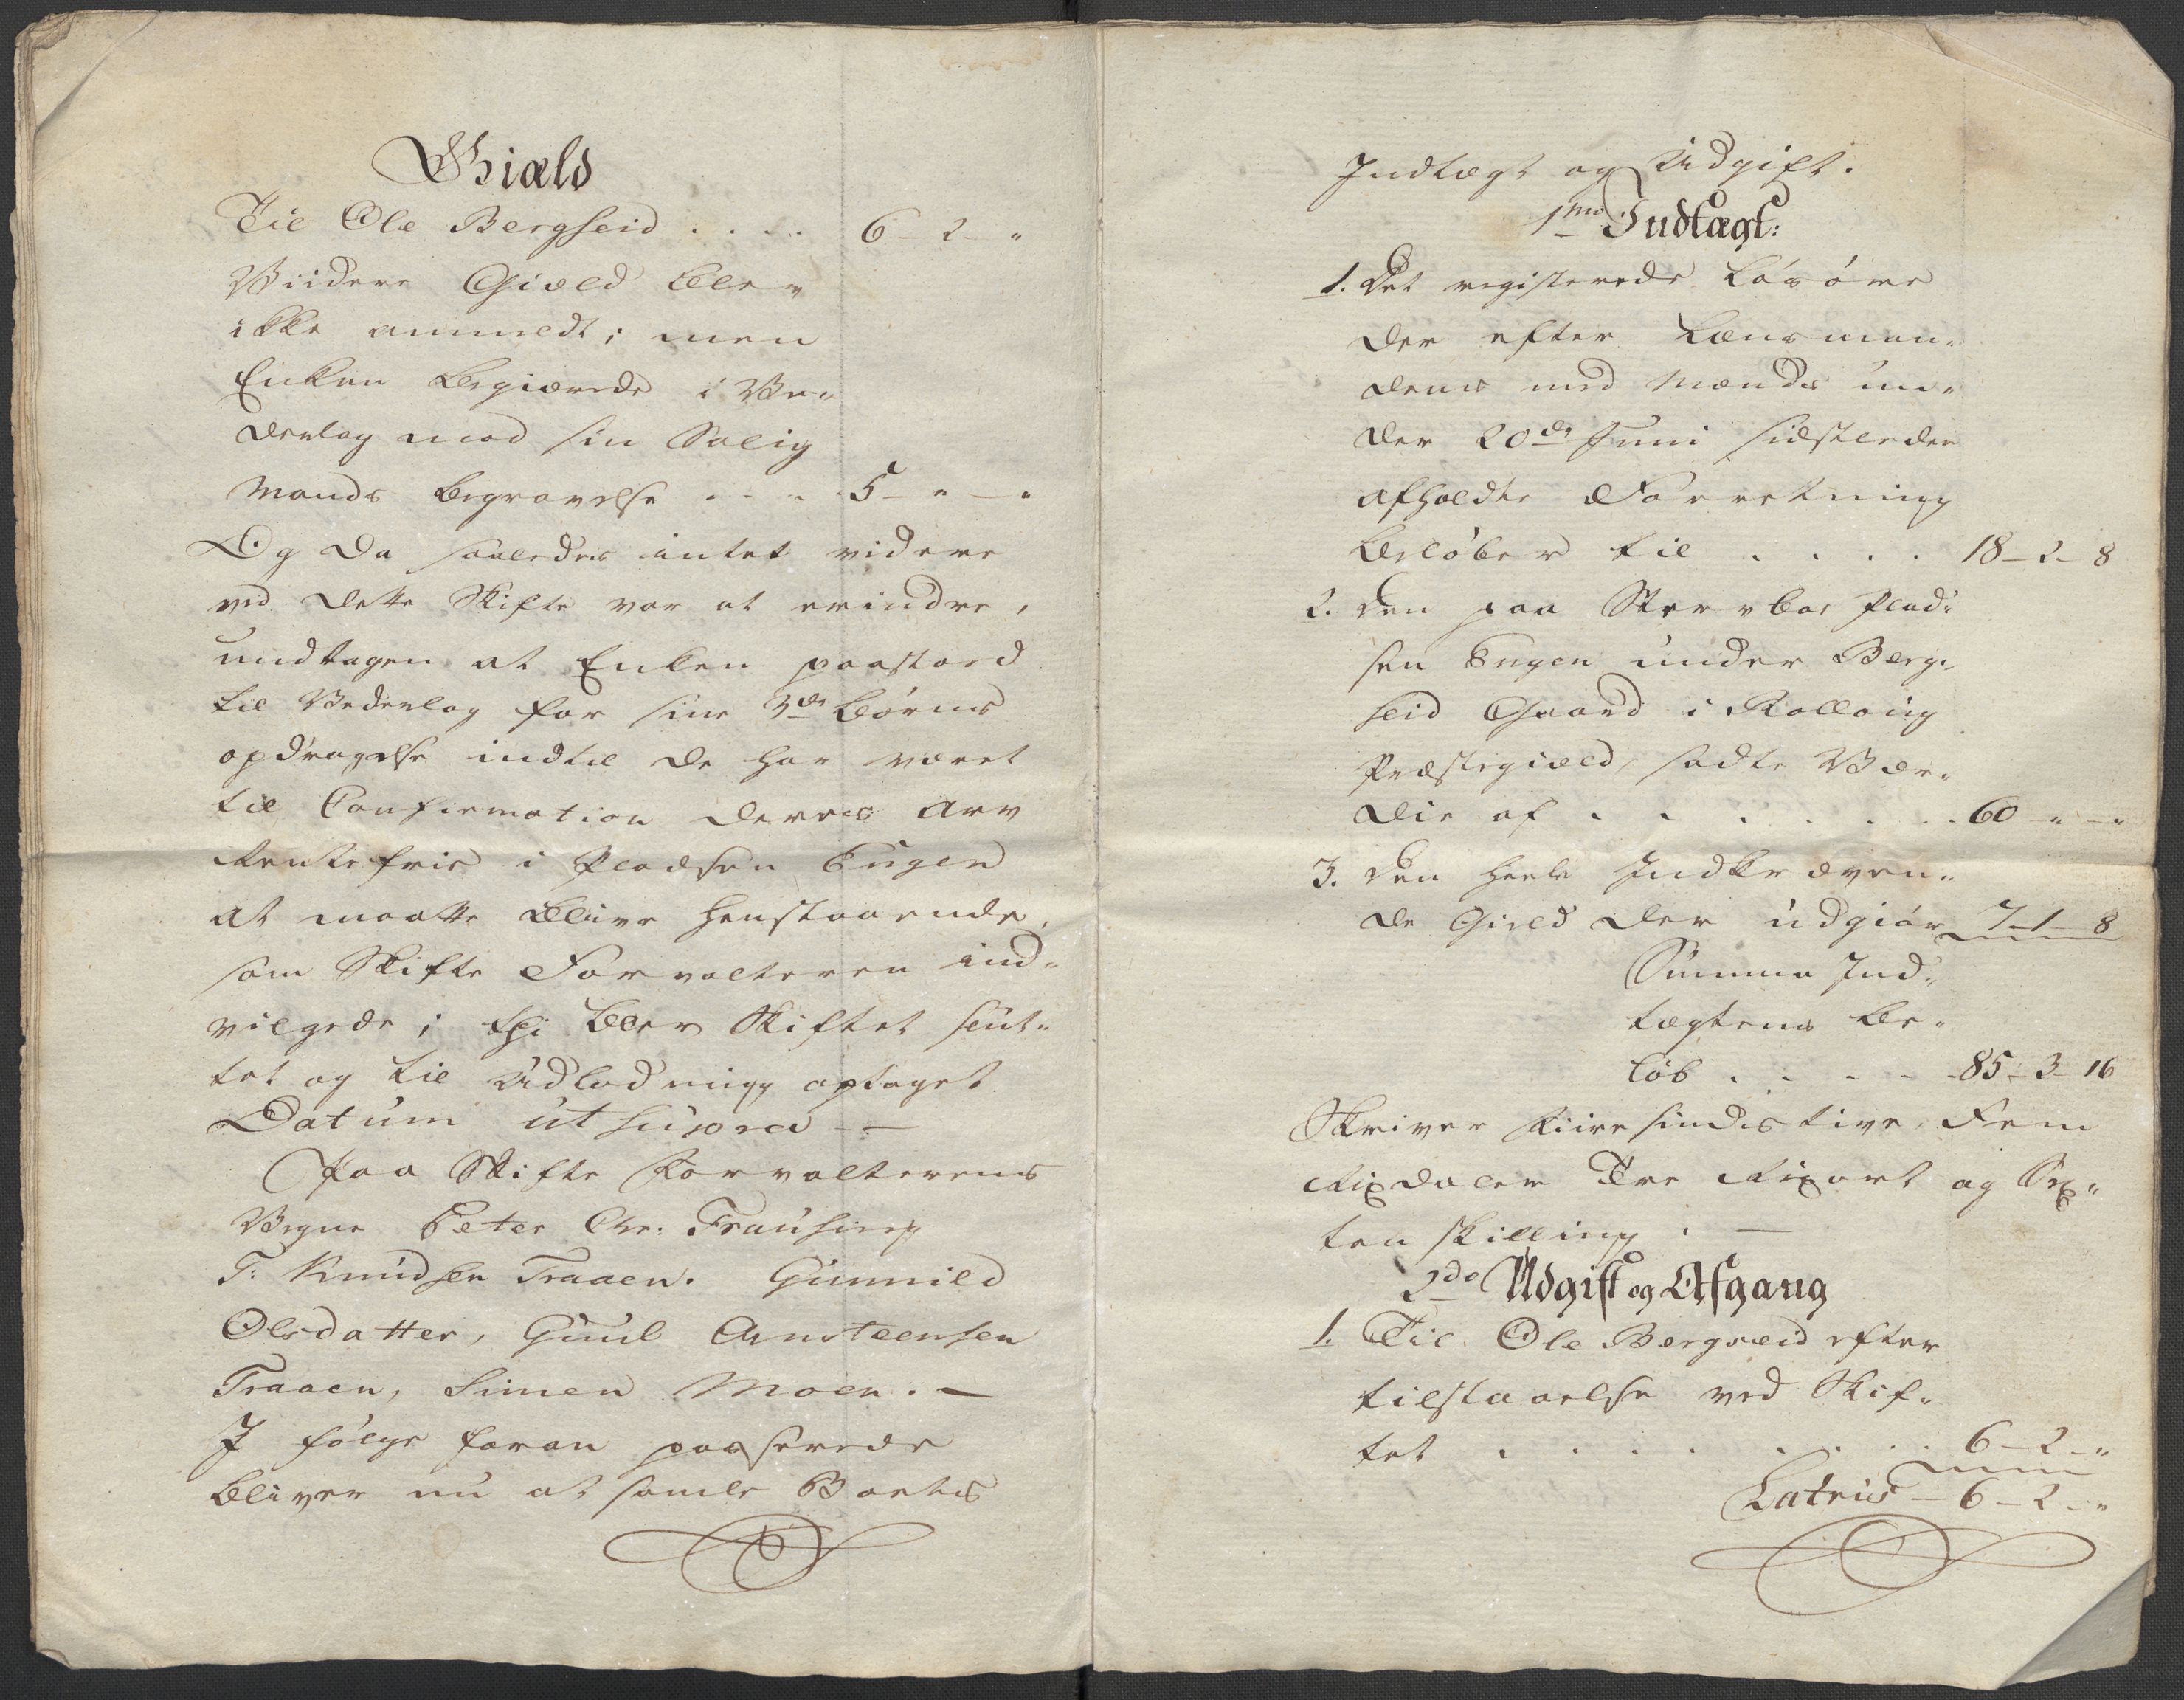 Giæld
Til Ole Bergseid . . . . 6 - 2 - "
Viidere Giæld blev
ikke anmeldt; men
Enken begiærede i Ve-
derlag mod sin Salig
Mands begravelse . . . . 5 - " - "
Og da saaledes intet videre
ved dette Skifte var at erindre,
undtagen at Enken paastoed
til Vederlag for sine 3de børns
opdragelse indtil de har været
til Confirmation deres Arv
Rentefrie i Pladsen Engen
at maatte blive henstaaende,
som Skifte Forvalteren ind-
vilgede; thi blev Skiftet slut-
tet og til Udlodning optaget
Datum ut supra -
Paa Skifte Forvalterens
Vegne Peter Chr: Frausing
T: Knudsen Traaen. Gunnild
Olsdatter, Guul Arnsteensen
Traaen, Simen Moen. -
I følge foran passerede
bliver nu at samle Boets
Indtægt og Udgift.
1mo Indtægt:
1. Det registerede Løsøre
der efter Lænsman-
dens med Mænds un-
der 20de Juni sidstleden
afholdte Forretning
beløber til . . . . 18 - 2 - 8
2. Den paa Stervboe Plad-
sen Engen under Berg-
seid Gaard i Rollaug
Præstegiæld, sadte Vær-
die af . . . . . . . 60 - " - "
3. Den heele Indkræven-
de Gield der udgiør 7 - 1 - 8
Summa Ind-
tægtens be-
løb . . . . . 85 - 3 - 16
Skriver Fiiresindstive Fem
Rixdaler Tre Rixort og Sex-
ten skilling. -
2do Udgift og Afgang
1. Til Ole Bergseid efter
tilstaaelse ved Skif-
tet . . . . . . . 6 - 2 - "
Lateris - 6 - 2 - "